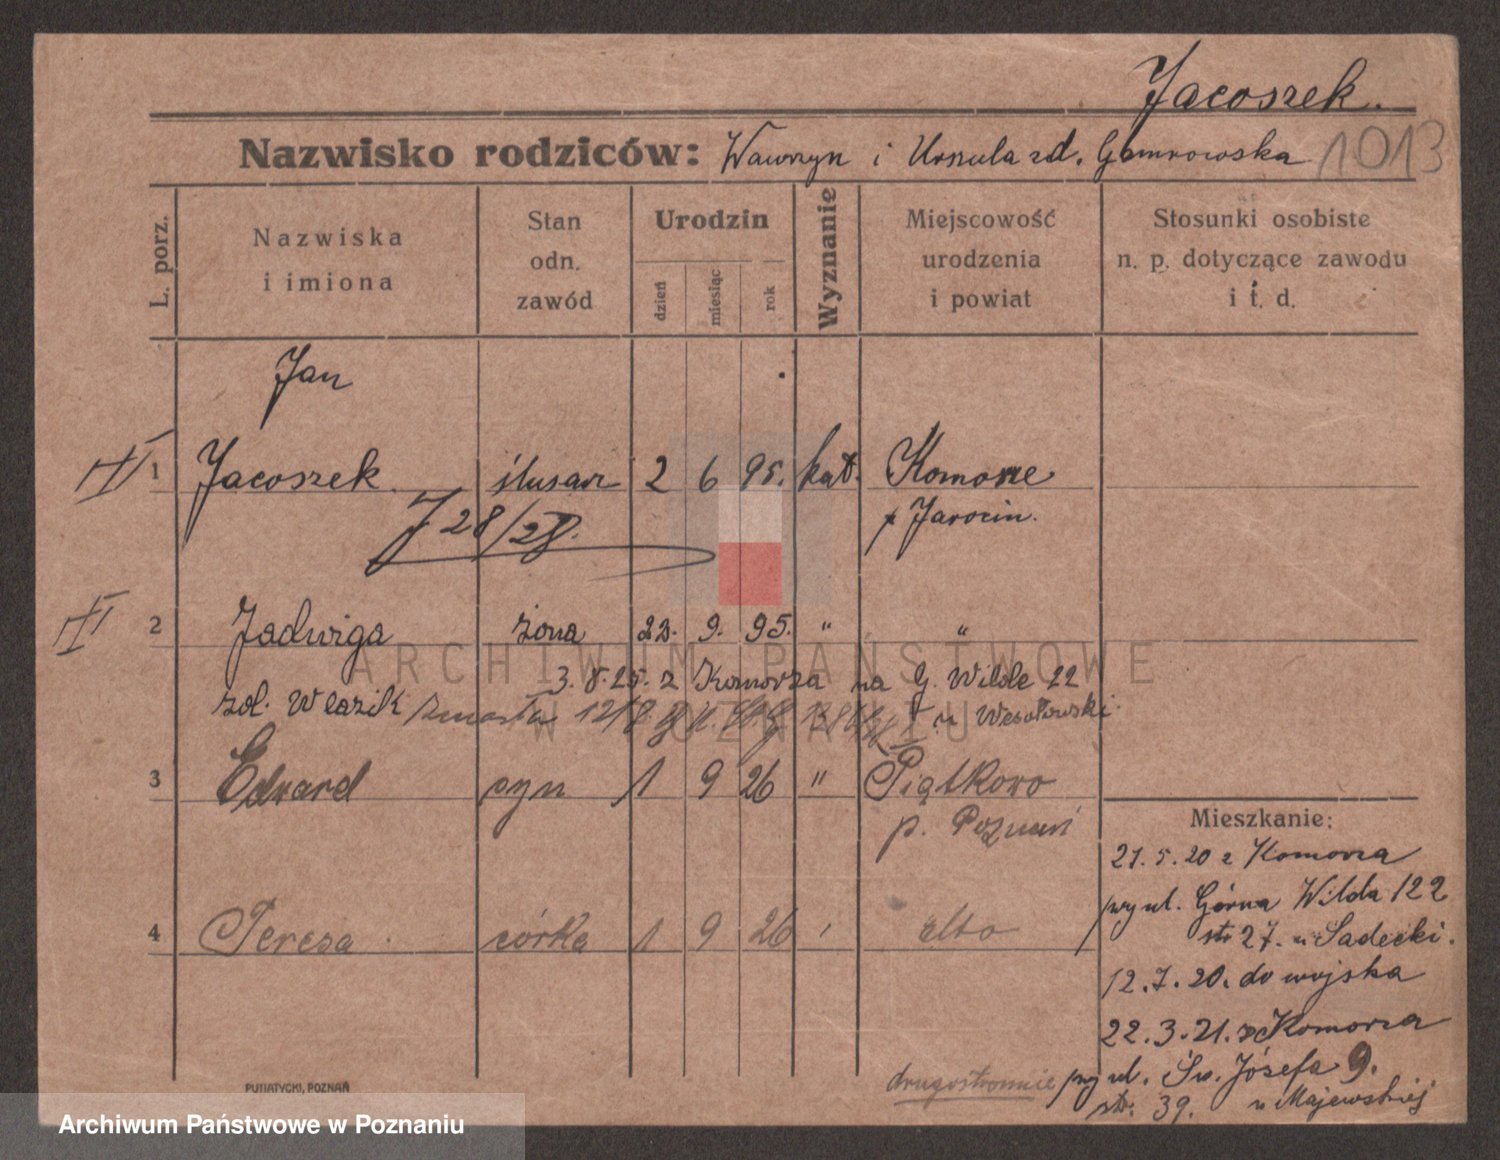 Jacoszek.
Nazwisko rodziców: Wawrzyn i Urszula zd. Gomrowska 1013
L. porz.
Nazwiska
i imiona
Stan
odn.
zawód
Urodzin
dzień
miesiąc
rok
Wyznanie
Miejscowość
urodzenia
i powiat
Stosunki osobiste
n. p. dotyczące zawodu
i t. d.
Jan
1 Jacoszek ślusarz 2 6 95. kat. Komorze
p Jarocin.
J 28/28.
2 Jadwiga żona 23. 9. 95. " "
3. 8. 25. z Komorza na G. Wilde 22
zd. Wlazik zmarła u Wesołowski
3 Edward syn 1 9 26 " Piątkowo
p. Poznań
4 Teresa córka 1 9 26 dto
Mieszkanie:
21. 5. 20 z Komorza
przy ul. Górna Wilda 122
str 27. u Sadecki.
12. 7. 20. do wojska
22. 3. 21. z Komorza
przy ul. Św. Józefa 9.
str. 39. u Majewskiej
drugostronnie
PUTIATYCKI, POZNAŃ
ARCHIWUM PAŃSTWOWE
W POZNANIU
Archiwum Państwowe w Poznaniu